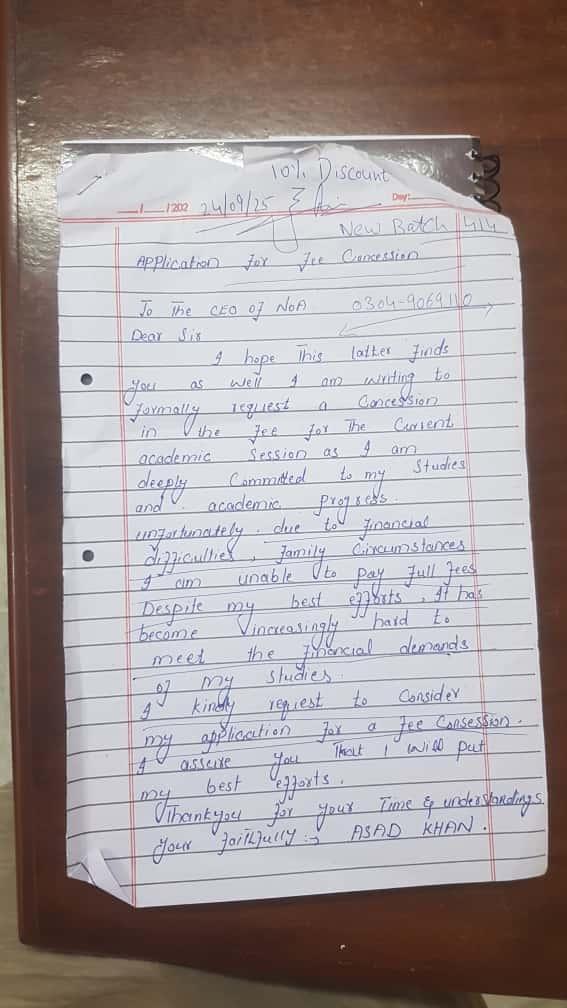 10% Discount
__/__/202 24/09/25 Day:
New Batch 414
Application for Fee Concession
To The CEO of NOA 0304-9069110
Dear Sir
I hope This latter finds
you as well I am writing to
formally request a Concession
in the fee for The Current
academic Session as I am
deeply Committed to my Studies
and academic Progress.
unfortunately. due to financial
difficullies, family Circumstances
I am unable to pay full fees
Despite my best efforts, It has
become increasingly hard to
meet the financial demands
of my studies.
I kindly request to Consider
my application for a fee Consession.
I assure you That I will put
my best efforts.
Thankyou for your Time & understandings
Your faithfully :→ ASAD KHAN.